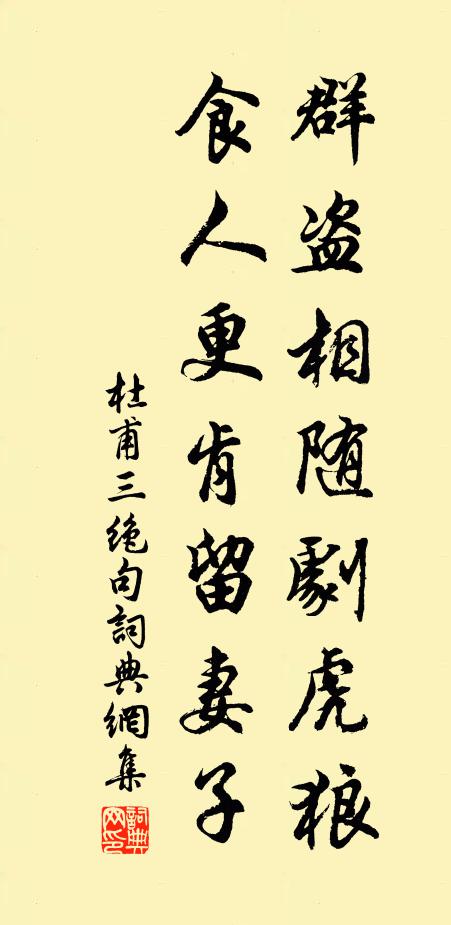 群盗相随劇虎狼
食人更肯留妻子
杜甫三絶句詞典網集
詞典网印